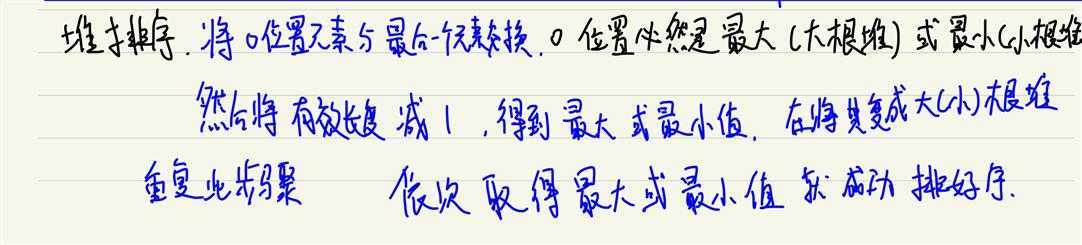 堆排序. 将0位置元素与最后一个元素交换. 0位置必然是最大(大根堆)或最小(小根堆
然后将有效长度减1, 得到最大或最小值. 在将其变成大(小)根堆
重复此步骤 依次取得最大或最小值 就成功排好序.